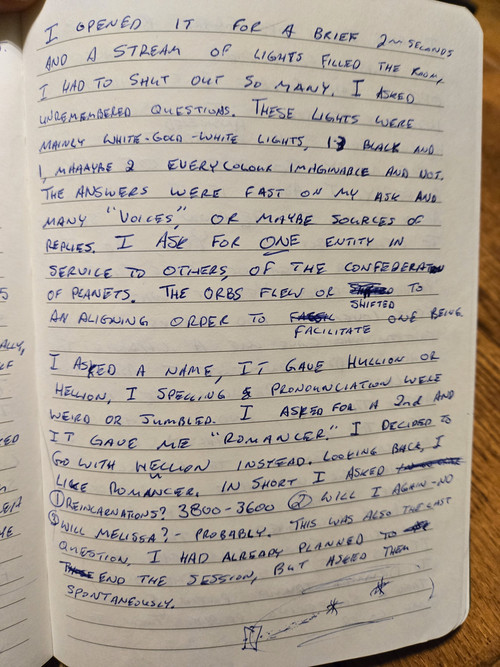 I OPENED IT FOR A BRIEF 2~ SECONDS
AND A STREAM OF LIGHTS FILLED THE ROOM,
I HAD TO SHUT OUT SO MANY. I ASKED
UNREMEMBERED QUESTIONS. THESE LIGHTS WERE
MAINLY WHITE-GOLD-WHITE LIGHTS, 1-3 BLACK AND
1, MAAAYBE 2 EVERY COLOUR IMAGINABLE AND NOT.
THE ANSWERS WERE FAST ON MY ASK AND
MANY "VOICES," OR MAYBE SOURCES OF
REPLIES. I ASK FOR ONE ENTITY IN
SERVICE TO OTHERS, OF THE CONFEDERATION
OF PLANETS. THE ORBS FLEW OR TO
SHIFTED
AN ALIGNING ORDER TO ONE BEING
FACILITATE
I ASKED A NAME, IT GAVE HULLION OR
HELLION, I SPELLING & PRONOUNCIATION WERE
WEIRD OR JUMBLED. I ASKED FOR A 2nd AND
IT GAVE ME "ROMANCER." I DECIDED TO
GO WITH INSTEAD. LOOKING BACK, I
LIKE ROMANCER. IN SHORT I ASKED
① REINCARNATIONS? 3800-3600 ② WILL I AGAIN-NO
③ WILL MELISSA? - PROBABLY. THIS WAS ALSO THE LAST
QUESTION, I HAD ALREADY PLANNED TO
END THE SESSION, BUT ASKED THEM
SPONTANEOUSLY.